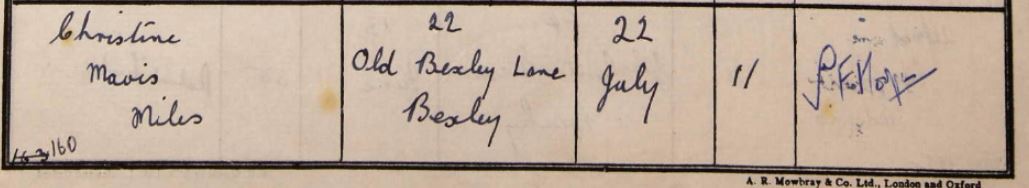 Christine
Mavis
Miles
22
Old Bexley Lane
Bexley
22
July
11
160
A. R. Mowbray & Co. Ltd., London and Oxford